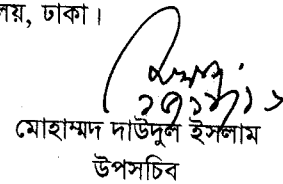 লয়, ঢাকা।
মোহাম্মদ দাউদুল ইসলাম
উপসচিব